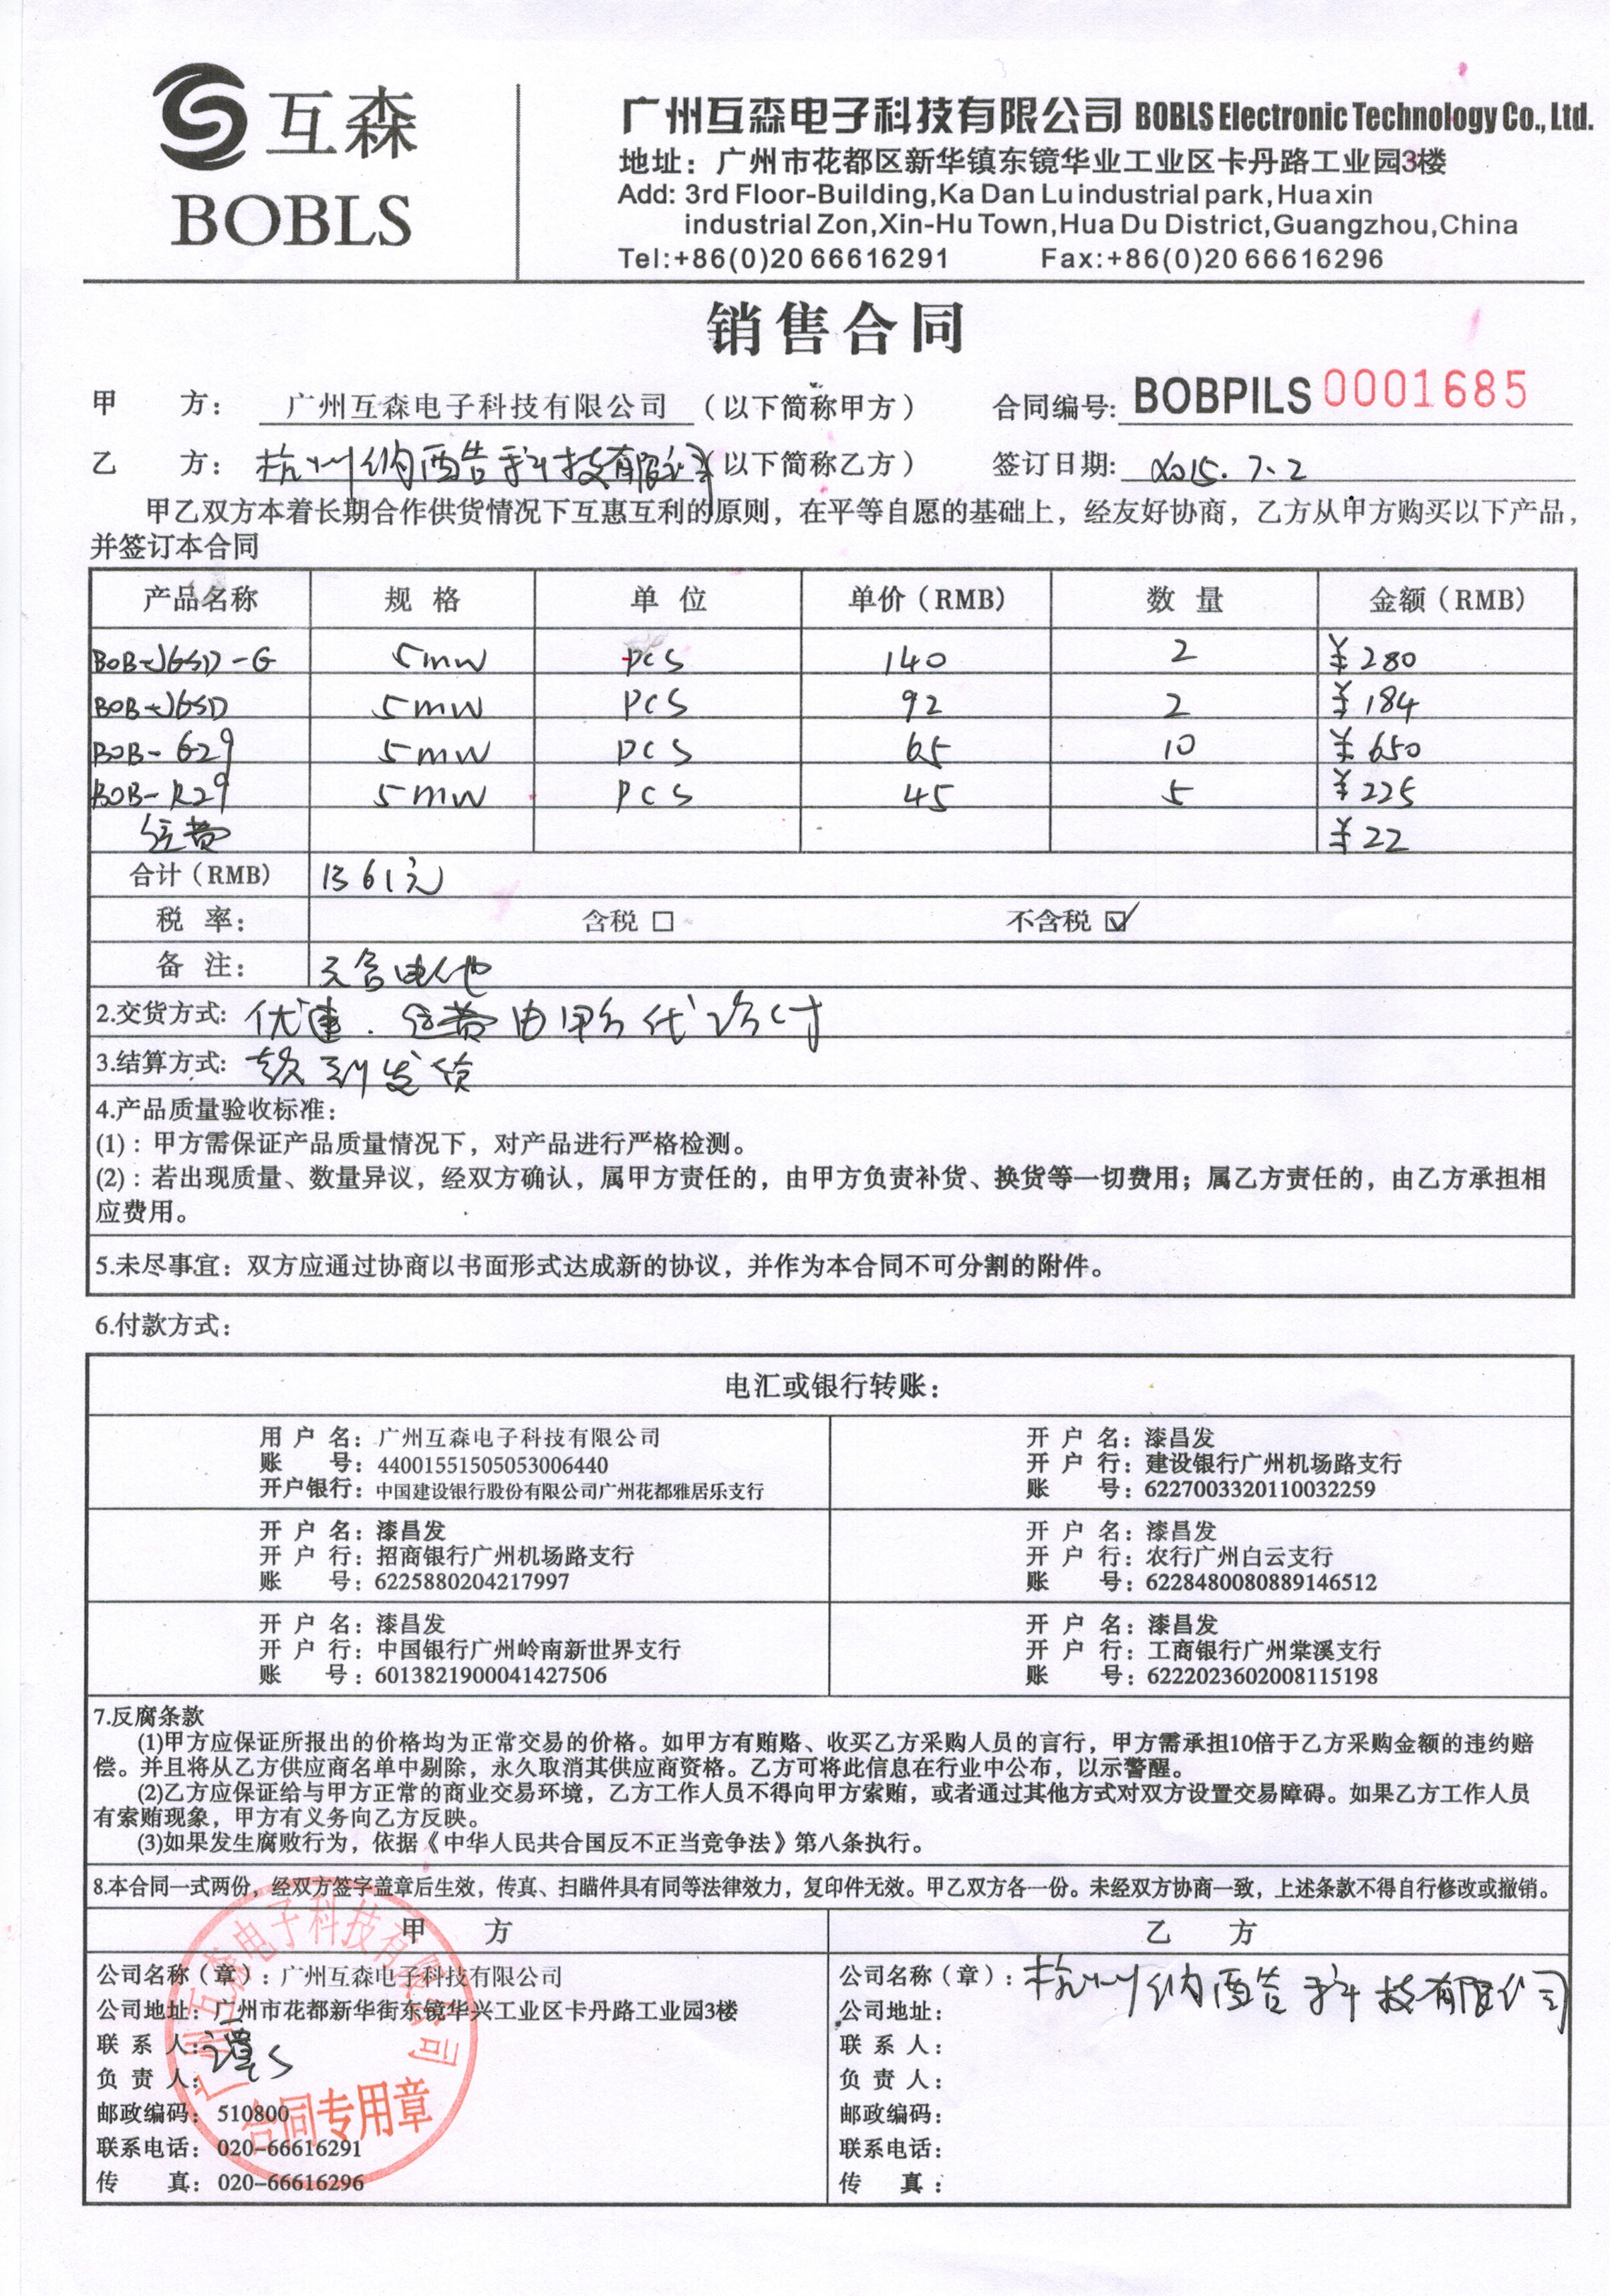 互森
BOBLS
广州互森电子科技有限公司 BOBLS Electronic Technology Co., Ltd.
地址：广州市花都区新华镇东镜华业工业区卡丹路工业园3楼
Add: 3rd Floor-Building,Ka Dan Lu industrial park, Hua xin
industrial Zon,Xin-Hu Town,Hua Du District,Guangzhou,China
Tel:+86(0)20 66616291 Fax:+86(0)20 66616296
销售合同
甲 方： 广州互森电子科技有限公司 （以下简称甲方） 合同编号: BOBPILS 0001685
乙 方： 杭州纳西告科技有限公司 （以下简称乙方） 签订日期: 2015.7.2
甲乙双方本着长期合作供货情况下互惠互利的原则，在平等自愿的基础上，经友好协商，乙方从甲方购买以下产品，
并签订本合同
产品名称 规 格 单 位 单价（RMB） 数 量 金额（RMB）
BOB-J6SD-G 5mW PCS 140 2 ¥280
BOB-J6SD 5mW PCS 92 2 ¥184
BOB-G29 5mW PCS 65 10 ¥650
BOB-R29 5mW PCS 45 5 ¥225
运费 ¥22
合计（RMB） 1361元
税 率： 含税 □ 不含税 ☑
备 注： 不含电池
2.交货方式: 优速. 运费由甲方代付
3.结算方式: 款到发货
4.产品质量验收标准：
(1)：甲方需保证产品质量情况下，对产品进行严格检测。
(2)：若出现质量、数量异议，经双方确认，属甲方责任的，由甲方负责补货、换货等一切费用；属乙方责任的，由乙方承担相
应费用。
5.未尽事宜：双方应通过协商以书面形式达成新的协议，并作为本合同不可分割的附件。
6.付款方式：
电汇或银行转账：
用 户 名：广州互森电子科技有限公司
账 号：44001551505053006440
开户银行：中国建设银行股份有限公司广州花都雅居乐支行
开 户 名：漆昌发
开 户 行：建设银行广州机场路支行
账 号：6227003320110032259
开 户 名：漆昌发
开 户 行：招商银行广州机场路支行
账 号：6225880204217997
开 户 名：漆昌发
开 户 行：农行广州白云支行
账 号：6228480080889146512
开 户 名：漆昌发
开 户 行：中国银行广州岭南新世界支行
账 号：6013821900041427506
开 户 名：漆昌发
开 户 行：工商银行广州棠溪支行
账 号：6222023602008115198
7.反腐条款
(1)甲方应保证所报出的价格均为正常交易的价格。如甲方有贿赂、收买乙方采购人员的言行，甲方需承担10倍于乙方采购金额的违约赔
偿。并且将从乙方供应商名单中剔除，永久取消其供应商资格。乙方可将此信息在行业中公布，以示警醒。
(2)乙方应保证给与甲方正常的商业交易环境，乙方工作人员不得向甲方索贿，或者通过其他方式对双方设置交易障碍。如果乙方工作人员
有索贿现象，甲方有义务向乙方反映。
(3)如果发生腐败行为，依据《中华人民共合国反不正当竞争法》第八条执行。
8.本合同一式两份，经双方签字盖章后生效，传真、扫瞄件具有同等法律效力，复印件无效。甲乙双方各一份。未经双方协商一致，上述条款不得自行修改或撤销。
甲 方
公司名称（章）：广州互森电子科技有限公司
公司地址：广州市花都新华街东镜华兴工业区卡丹路工业园3楼
联 系 人：
负 责 人：
邮政编码：510800
联系电话：020-66616291
传 真：020-66616296
广州互森电子科技有限公司
合同专用章
乙 方
公司名称（章）：杭州纳西告科技有限公司
公司地址：
联 系 人：
负 责 人：
邮政编码：
联系电话：
传 真：